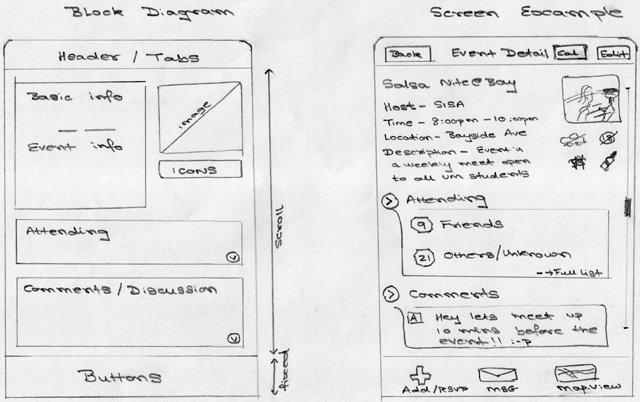 Block Diagram
Header / Tabs
Basic info
Event info
image
ICONS
Attending
Comments / Discussion
Buttons
Scroll
fixed
Screen Example
Back
Event Detail
Cal
Edit
Salsa Nite@Bay
Host - SISA
Time - 8:00pm - 10:00pm
Location - Bayside Ave
Description - Event is
a weekly meet open
to all um students
18
> Attending
9 Friends
21 Others/Unknown
→ Full list
> Comments
A Hey lets meet up
10 mins before the
event!! :-p
Add/RSVP
MSG
mapview